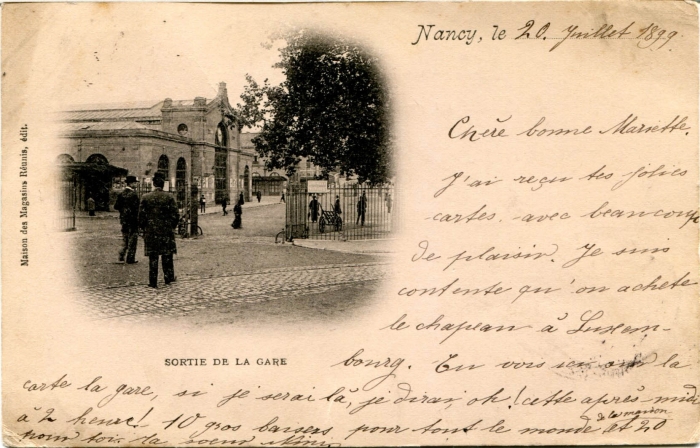 Nancy, le 20. Juillet 1899.
Chère bonne Mariette.
J'ai reçu tes jolies
cartes avec beaucoup
de plaisir. Je suis
contente qu'on achete
le chapeau à Luxem-
bourg. Tu vois ici sur la
carte la gare, si je serai là, je dirai, oh! cette après-midi
à 2 heure! 10 gros baisers, pour tout le monde et 20
de la maison
pour toi. ta soeur
SORTIE DE LA GARE
Maison des Magasins Réunis, édit.